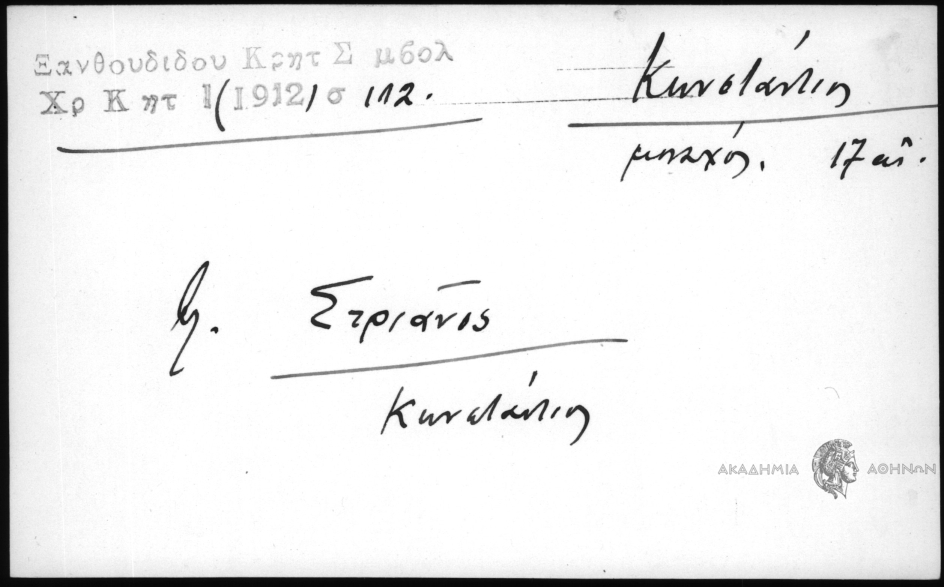 Ξανθουδιδου Κρητ Σ μβολ
Χρ Κ ητ 1(1912) σ 112.
Κωνστάντιος
μοναχός. 17 αἰ.
Στριάνος
Κωνστάντιος
ΑΚΑΔΗΜΙΑ ΑΘΗΝΩΝ